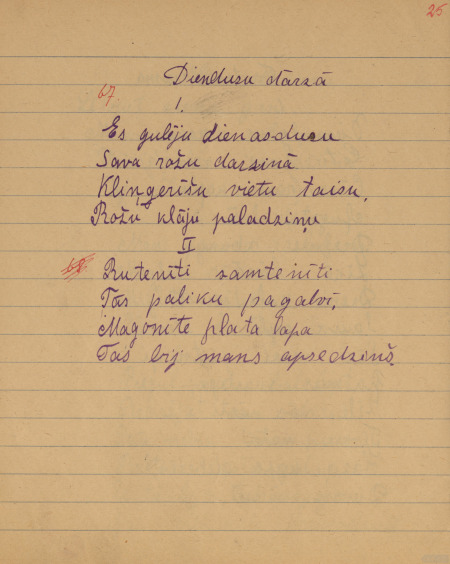 25
Diendusu dārzā
67.
I.
Es gulēju dienasdusu
Sava rožu darzinā
Klingerīšu vietu taisu,
Rožu klāju paladziņu
II
68.
Rutenīti samtenīti
Tās paliku pagalvī,
Magonīte plata lapa
Tas bij mans apsedziņš.